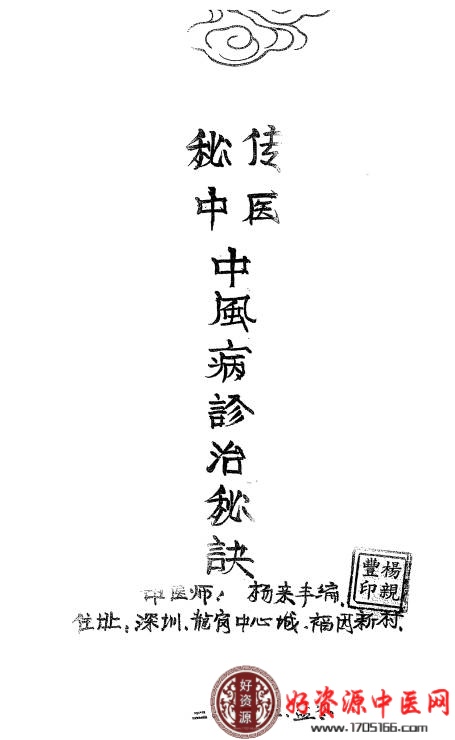 秘传
中医
中風病診治秘訣
中医师：杨来丰编
豐楊
印親
住址：深圳.龍岗中心城.福园新村.
二
好资源
好资源中医网
www.1705166.com